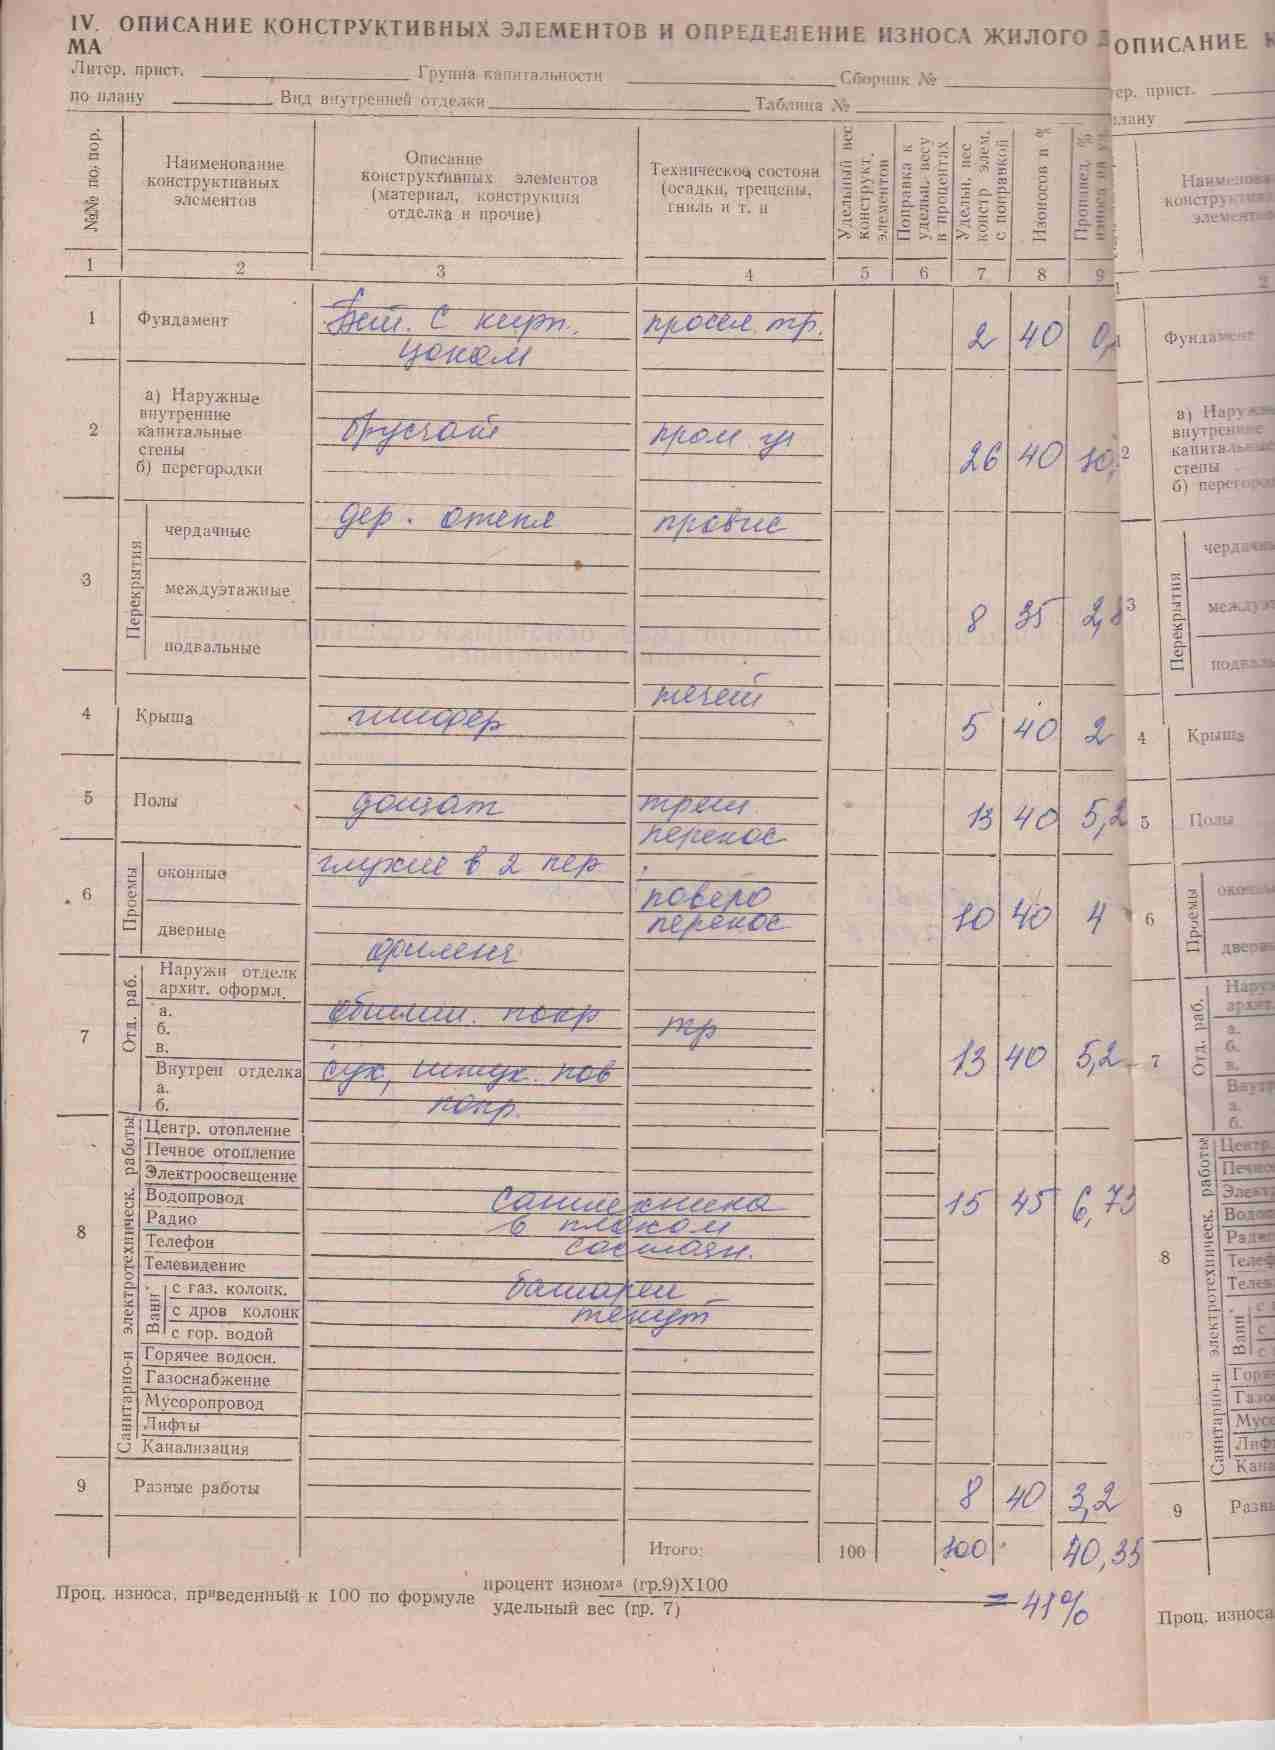 IV. ОПИСАНИЕ КОНСТРУКТИВНЫХ ЭЛЕМЕНТОВ И ОПРЕДЕЛЕНИЕ ИЗНОСА ЖИЛОГО
МА
Литер. прист. Группа капитальности Сборник №
по плану Вид внутренней отделки Таблица №
№№ по; пор.
Наименование
конструктивных
элементов
Описание
конструктивных элементов
(материал, конструкция
отделка и прочие)
Техническое состояи
(осадки, трещены,
гниль и т. п
Удельный вес
конструкт,
элементов
Поправка к
удельн. весу
в процентах
Удельн, вес
констр элем.
с поправкой
Изоносов в %
1 2 3 4 5 6 7 8 9
1 Фундамент Бет. с кирп. просел. тр. 2 40 0,
цоколм
2 а) Наружные
внутренние
капитальные
стены
б) перегородки
брусчат 26 40 10,
3 Перекрытия
чердачные дер. отепл провис
междуэтажные 8 35 2,8
подвальные
течет
4 Крыша шифер 5 40 2
5 Полы дощат трещ. 13 40 5,2
перекос
6 Проемы
оконные глухие в 2 пер
дверные перекос 10 40 4
филенч.
7 Отд. раб.
Наружн отделк
архит. оформл.
а.
б.
в.
обшит. покр тр 13 40 5,2
Внутрен отделка
а.
б.
сух, штук. пов
покр.
8 Санитарно-и электротехническ. работы
Центр. отопление
Печное отопление
Электроосвещение
Водопровод сантехника 15 45 6,75
Радио в плохом
Телефон состоян.
Телевидение
Ванн
с газ. колонк. батареи
с дров колонк текут
с гор. водой
Горячее водосн.
Газоснабжение
Мусоропровод
Лифты
Канализация
9 Разные работы 8 40 3,2
Итого: 100 100 40,35
Проц. износа, приведенный к 100 по формуле процент изнома (гр.9)Х100
удельный вес (гр. 7)
= 41%
ОПИСАНИЕ К
ер. прист.
плану
Наименова
конструктив
элементов
2
Фундамент
2 а) Наружн
внутренние
капитальные
стены
б) перегород
3 Перекрытия
чердачн
междуэт
подваль
4 Крыша
5 Полы
6 Проемы
оконны
дверны
7 Отд. раб.
Наруж
архит.
а.
б.
в.
Внутр
а.
б.
8 Санитарно-и электротехническ. работы
Центр.
Печное
Электр
Водоп
Радио
Телеф
Телев
Ванн
с г
с
с г
Горяч
Газос
Мусо
Лифт
Кана
9 Разны
Проц. износа